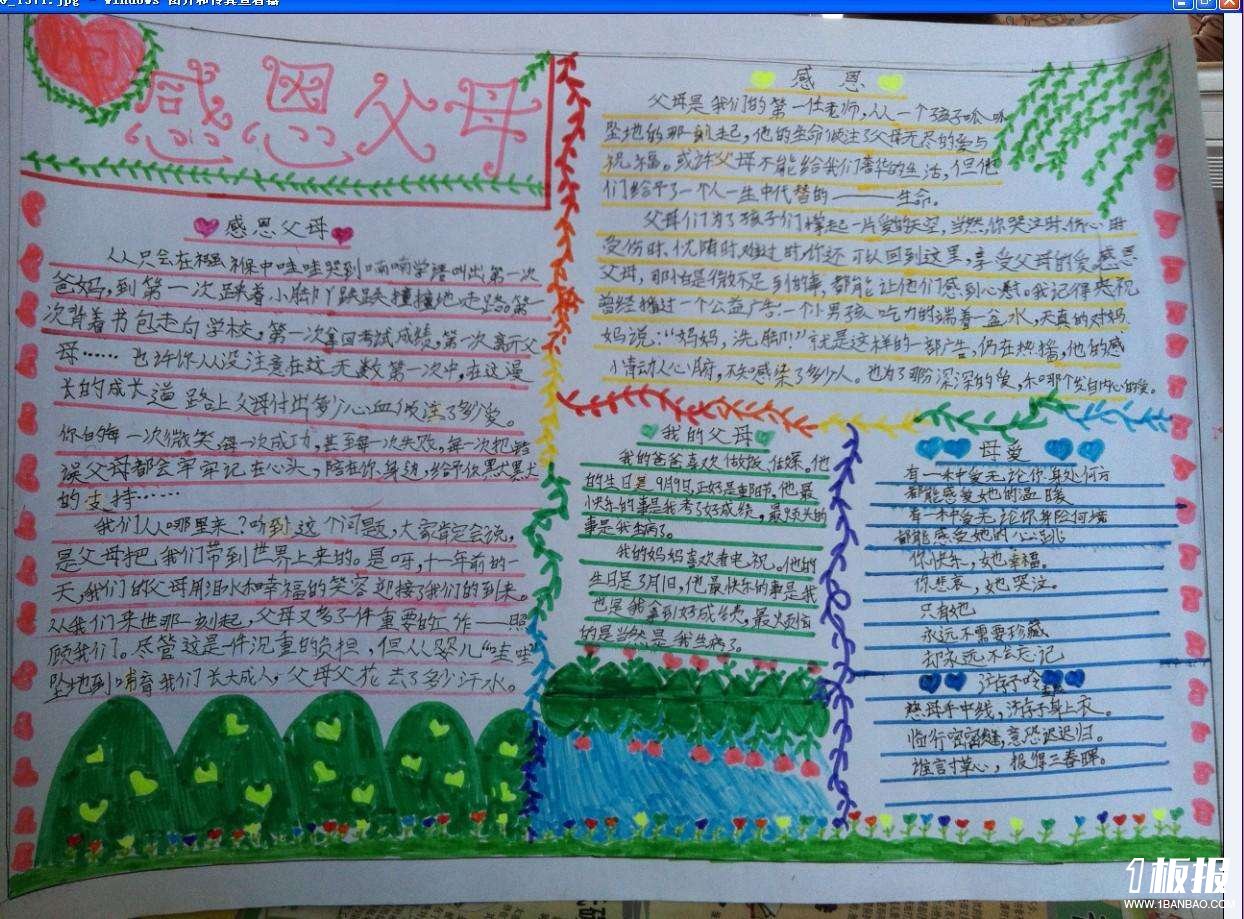 感恩父母
感恩父母
人只会在襁褓中哇哇哭到喃喃学语叫出第一次
爸妈,到第一次踩着小脚丫跌跌撞撞地走路。第一
次背着书包走向学校,第一次拿回考试成绩,第一次离开父
母……也许你从没注意在这无数第一次中,在这漫
长的成长道路上父母付出多少心血倾注了多少爱。
你的每一次微笑,每一次成功,甚至每一次失败,每一次把错
误父母都会牢牢记在心头,陪在你身边,给予你默默
的支持……
我们从哪里来?听到这个问题,大家肯定会说,
是父母把我们带到世界上来的。是呀,十一年前的一
天,我们的父母用泪水和幸福的笑容迎接了我们的到来。
从我们来世那一刻起,父母又多了件重要的工作——照
顾我们。尽管这是一件沉重的负担,但从婴儿“哇哇”
坠地到哺育我们长大成人,父母父花去了多少汗水。
感恩
父母是我们的第一任老师,从一个孩子呱呱
坠地的那一刻起,他的生命倾注了父母无尽的爱与
祝福。或许父母不能给我们奢华的生活,但他
们给予了一个人一生中代替的———生命。
父母们为了孩子们撑起一片爱的天空,当然,你哭泣时、伤心时
受伤时、忧郁时、难过时,你还可以回到这里,享受父母的爱,感恩
父母,那怕是微不足到的事,都能让他们感到心慰。我记得悲视
曾经播过一个公益广告:一个小男孩吃力的端着一盆水,天真的对妈
妈说:“妈妈,洗脚!”就是这样的一部广告,仍在热播,他的感
小情动人心府,不知感染了多少人。也为了那份深深的爱,
我的父母
我的爸爸喜欢做饭,他
的生日是9月9日,正好是重阳节。他最
快乐的事是我考了好成绩,最烦恼的
事是我生病了。
我的妈妈喜欢看电视。他的
生日是3月1日,他最快乐的事是我
也是我拿到好成绩,最火恼
的是当然是我生病了。
母爱
有一种爱无论你身处何方
都能感受她的温暖
有一种爱无论你身临何境
都能感受她的心跳
你快乐,她幸福。
你悲哀,她哭泣。
只有她
永远不需要珍藏
却永远不会忘记
游子吟
慈母手中线,游子身上衣。
临行密密缝,意恐迟迟归。
谁言寸草心,报得三春晖。
1板报
WWW.1BANBAO.COM